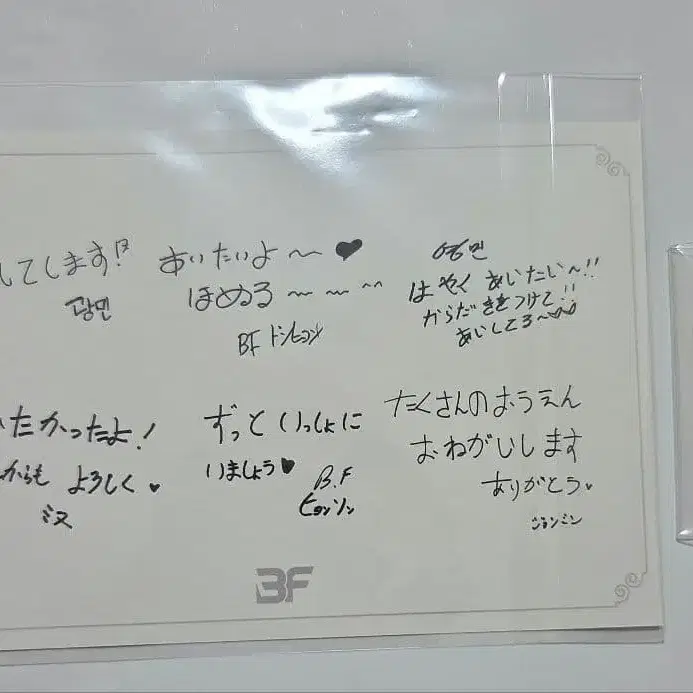 してします!?
광민
あいたいよ〜♥
ほめる〜〜^^
BF ドンヒョン
영민
はやく あいたい〜!!
からだ きをつけて!!
あいしてる〜
たかったよ!
からも よろしく♥
ミヌ
ずっと いっしょに
いましょう♥
B.F
ヒョンソン
たくさんのおうえん
おねがいします
ありがとう♥
ジョンミン
BF